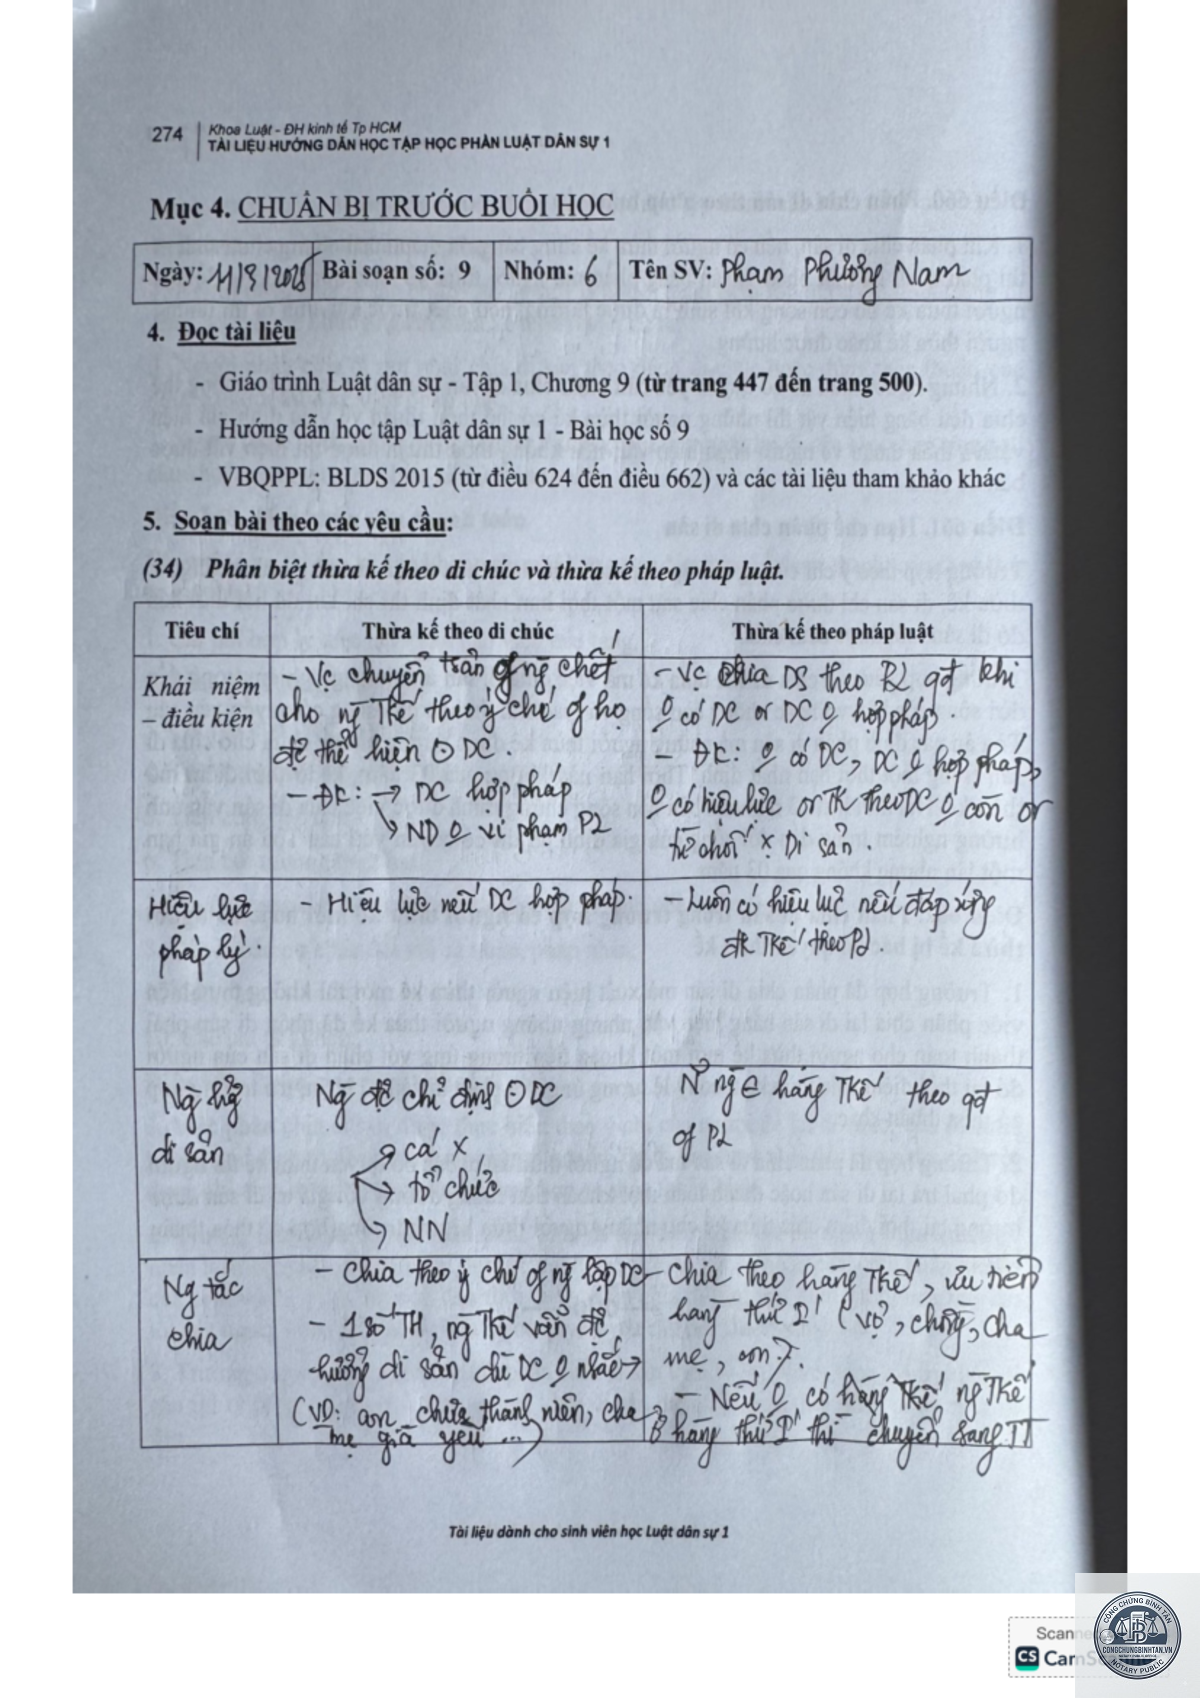 274 Khoa Luật - ĐH kinh tế Tp HCM
TÀI LIỆU HƯỚNG DẪN HỌC TẬP HỌC PHẦN LUẬT DÂN SỰ 1
Mục 4. CHUẨN BỊ TRƯỚC BUỔI HỌC
Ngày: 11/9/2025 Bài soạn số: 9 Nhóm: 6 Tên SV: Phạm Phương Nam
4. Đọc tài liệu
- Giáo trình Luật dân sự - Tập 1, Chương 9 (từ trang 447 đến trang 500).
- Hướng dẫn học tập Luật dân sự 1 - Bài học số 9
- VBQPPL: BLDS 2015 (từ điều 624 đến điều 662) và các tài liệu tham khảo khác
5. Soạn bài theo các yêu cầu:
(34) Phân biệt thừa kế theo di chúc và thừa kế theo pháp luật.
Tiêu chí
Thừa kế theo di chúc
Thừa kế theo pháp luật
Khái niệm
– điều kiện
- Vc chuyển tsản of ng chết
cho ng Tkế theo ý chí of họ
để thể hiện DC
- ĐK: → DC hợp pháp
→ ND vi phạm PL
- Vc chia DS theo PL qđ khi
có DC or DC hợp pháp.
- ĐK: có DC, DC hợp pháp,
có hiệu lực or TK theo DC còn or
từ chối x Di sản
Hiệu lực
pháp lý.
- Hiệu lực nếu DC hợp pháp.
- Luôn có hiệu lực nếu đáp ứng
đk Tkế theo PL.
Ng hg
di sản
Ng đc chỉ định DC
→ cá x
→ tổ chức
→ NN
N~ ng ∈ hàng Tkế theo qđ
of PL
Ng tắc
chia
- Chia theo ý chí of ng lập DC
- 1 số TH, ng Tkế vẫn đc
hưởng di sản dù DC nhắc →
(VD: con chưa thành niên, cha
mẹ già yếu ...)
- Chia theo hàng Tkế, ưu tiên
hàng thứ I (vợ, chồng, cha
mẹ, con).
- Nếu có hàng Tkế, ng Tkế
hàng thứ I thì chuyển sang II
Tài liệu dành cho sinh viên học Luật dân sự 1
CS
CÔNG CHỨNG BÌNH TÂN
CONGCHUNGBINHTAN.VN
NOTARY PUBLIC